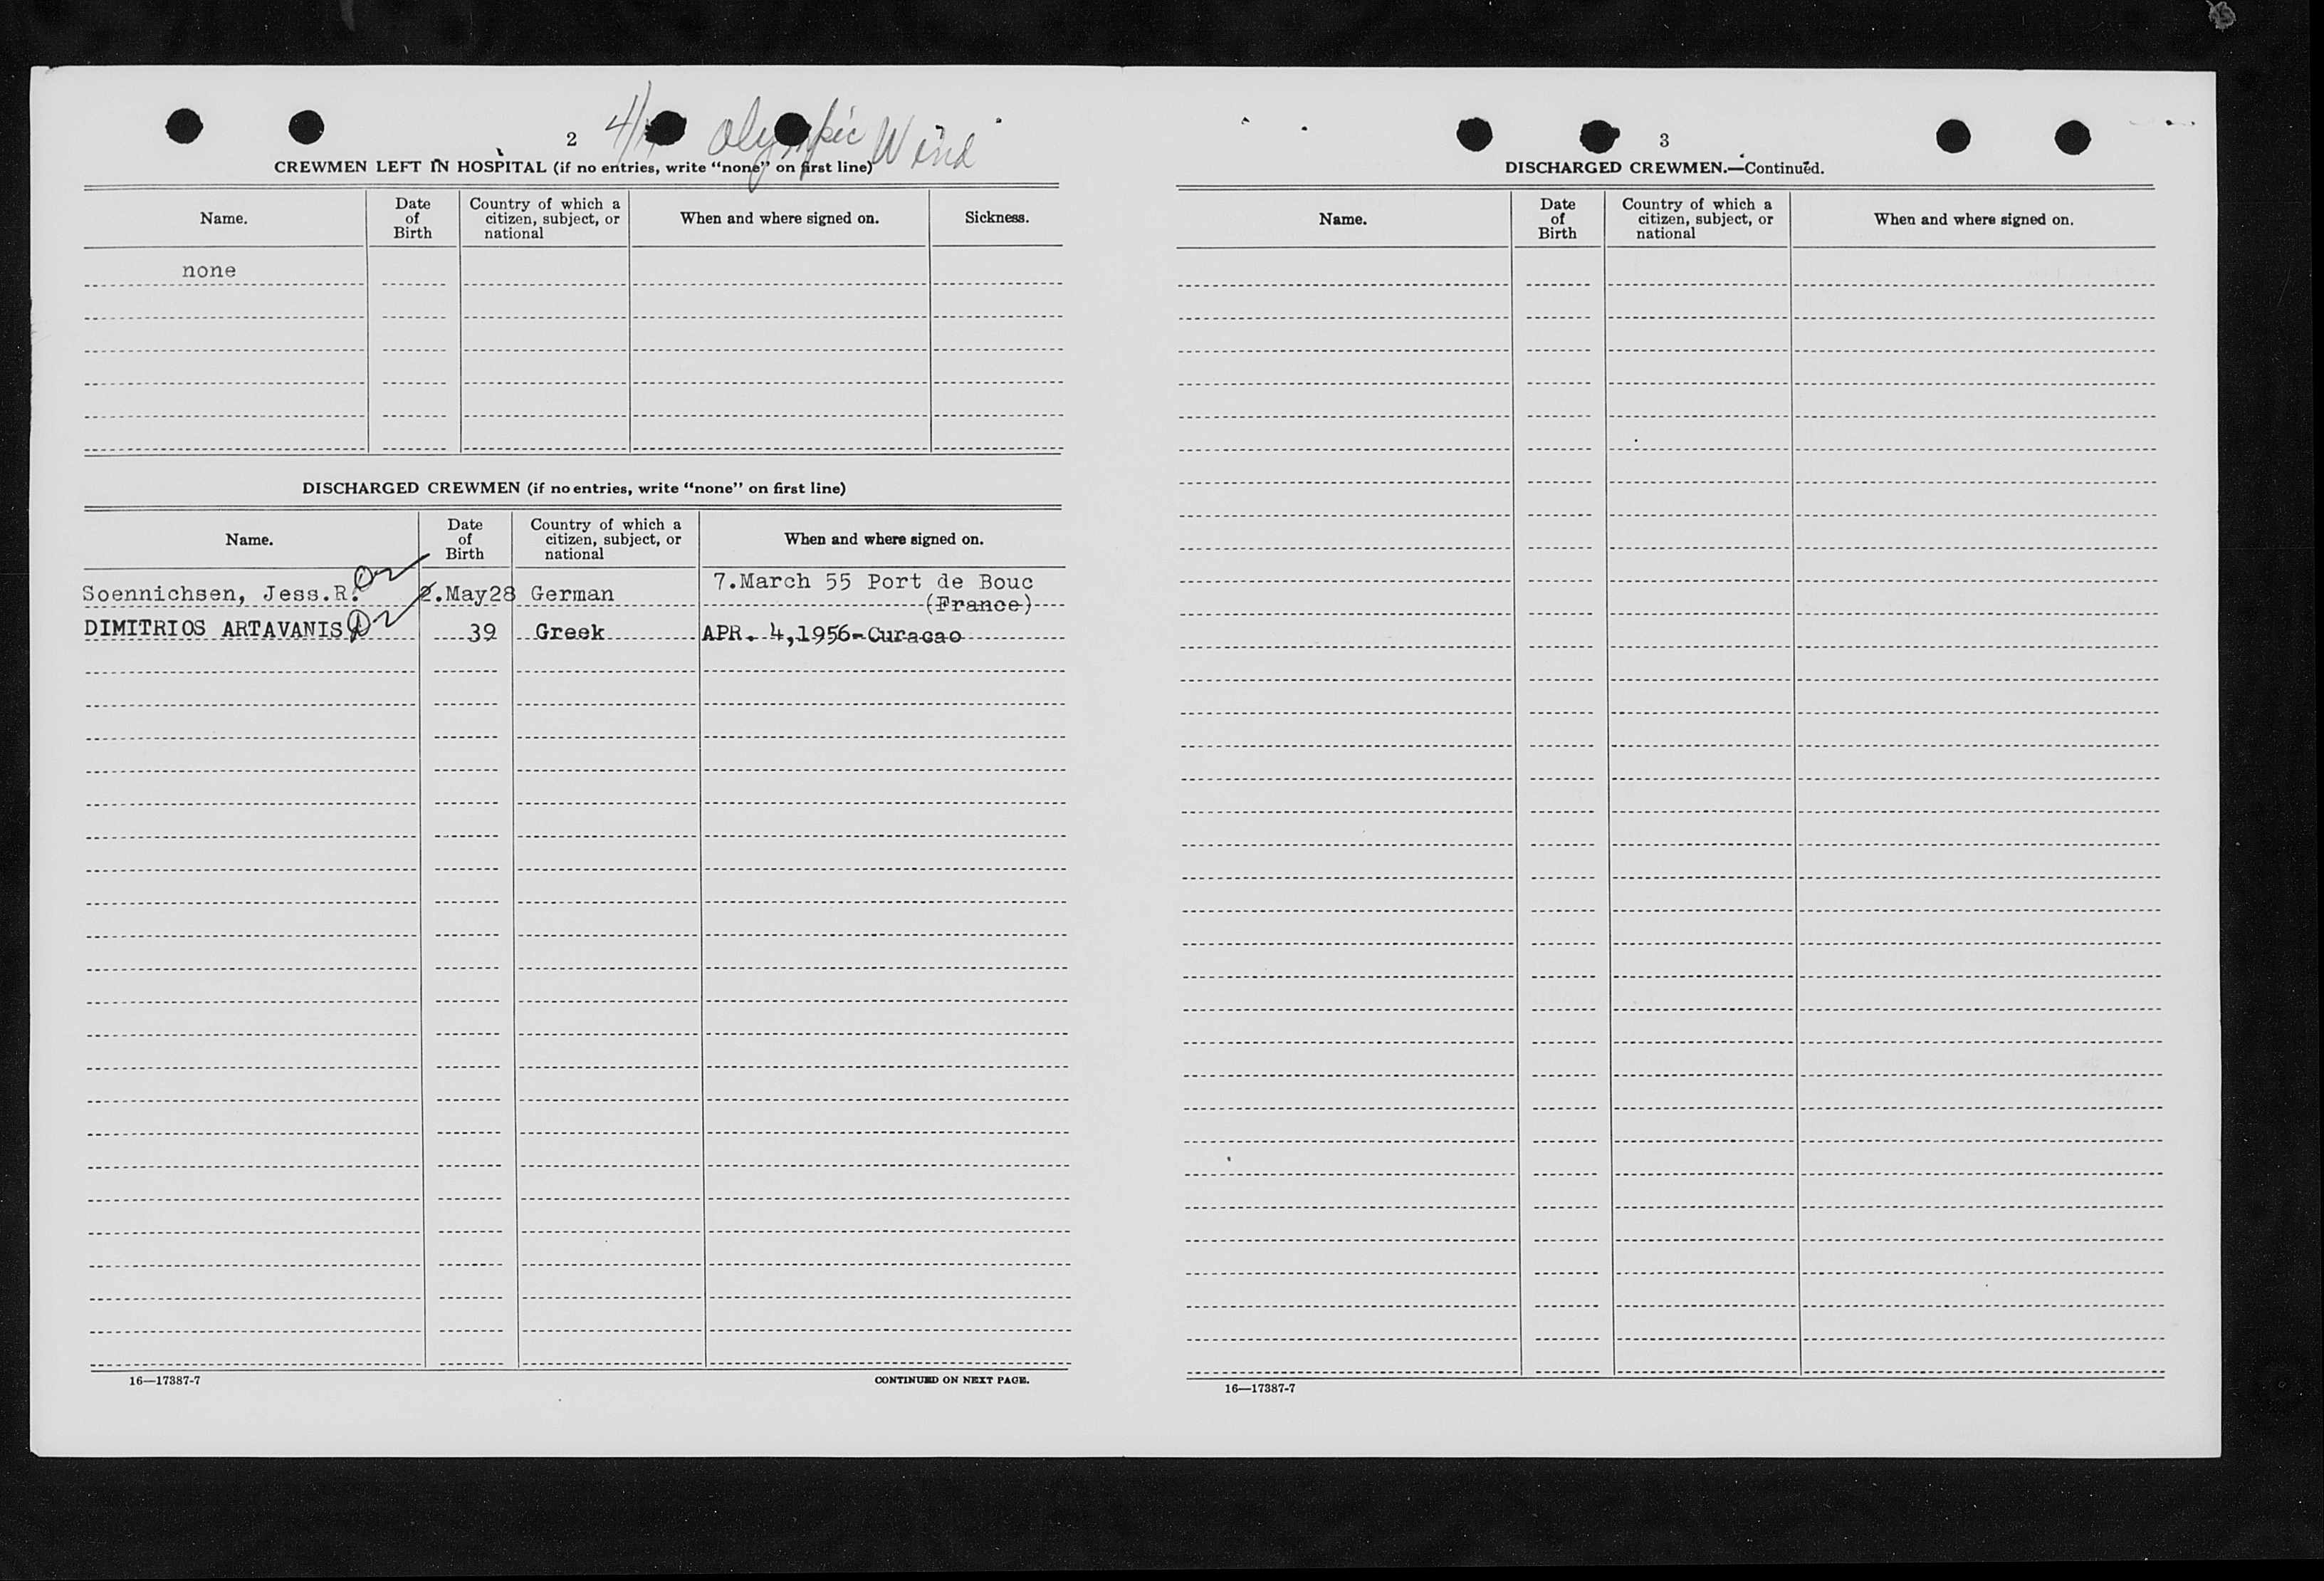 2
Olympic Wind
CREWMEN LEFT IN HOSPITAL (if no entries, write “none” on first line)
Name.
Date of Birth
Country of which a citizen, subject, or national
When and where signed on.
Sickness.
none
DISCHARGED CREWMEN (if no entries, write “none” on first line)
Name.
Date of Birth
Country of which a citizen, subject, or national
When and where signed on.
Soennichsen, Jess.R. 2.May28 German 7.March 55 Port de Bouc
(France)
DIMITRIOS ARTAVANIS 39 Greek APR. 4,1956-Curacao
16—17387-7
CONTINUED ON NEXT PAGE.
3
DISCHARGED CREWMEN.—Continued.
Name.
Date of Birth
Country of which a citizen, subject, or national
When and where signed on.
16—17387-7